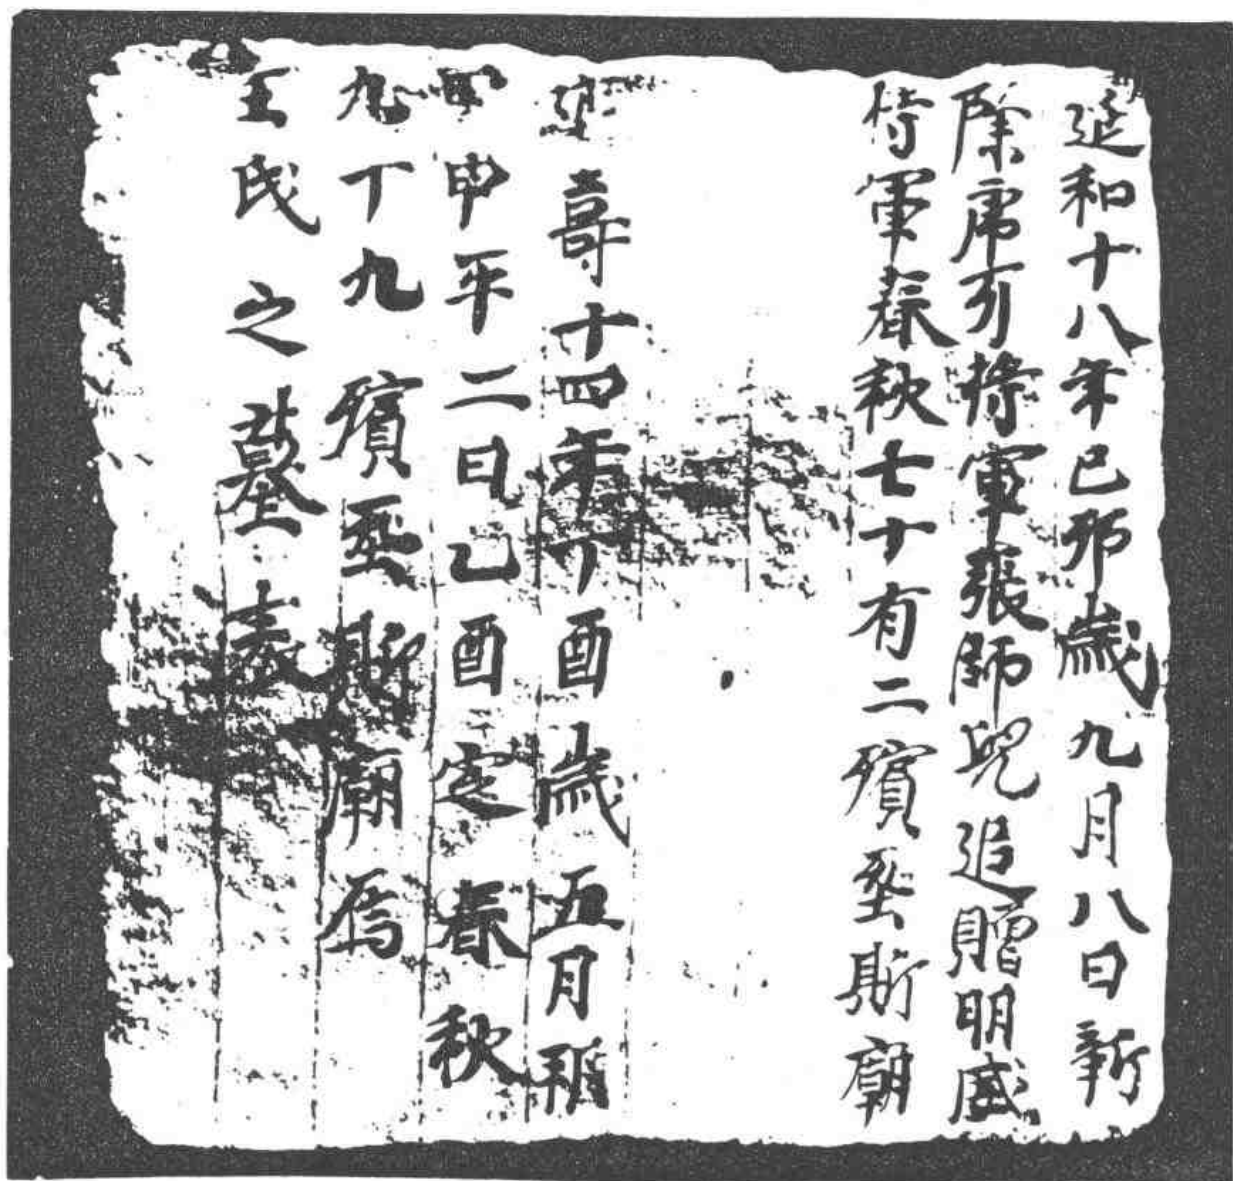 延和十八年己卯歲九月八日新
除虎牙將軍張師兒追贈明威
將軍春秋七十有二殯𦵏斯廟
延壽十四年丁酉歲五月
甲申平二日乙酉定春秋
九丁九殯𦵏斯廟焉
王氏之墓表